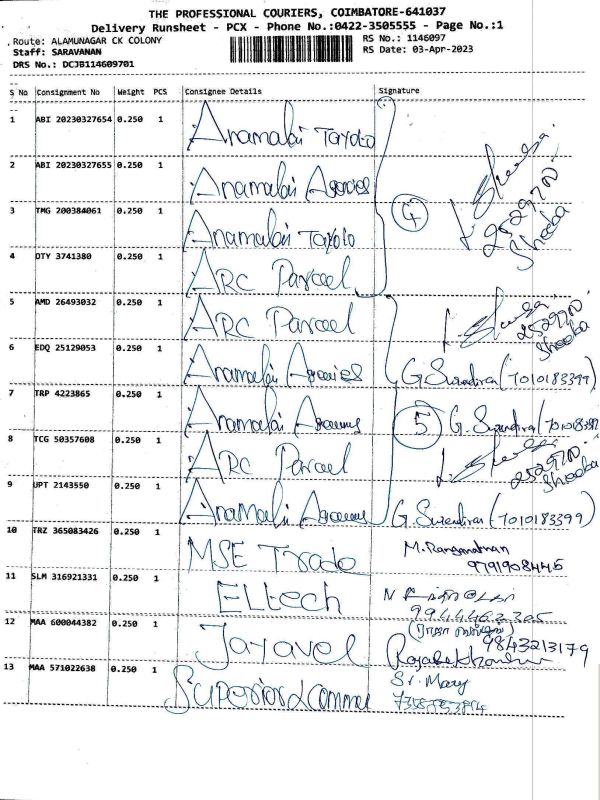 THE PROFESSIONAL COURIERS, COIMBATORE-641037
Delivery Runsheet - PCX - Phone No.:0422-3505555 - Page No.:1
Route: ALAMUNAGAR CK COLONY RS No.: 1146097
Staff: SARAVANAN RS Date: 03-Apr-2023
DRS No.: DCJB114609701
S No Consignment No Weight PCS Consignee Details Signature
1 ABI 20230327654 0.250 1 Anamalai Tayoto
2 ABI 20230327655 0.250 1 Anamalai Agencies
3 TMG 200384061 0.250 1 Anamalai Tayoto
4 2529700 Sheeba
4 OTY 3741380 0.250 1 ARC Parcel
5 AMD 26493032 0.250 1 ARC Parcel 2529700 Sheeba
6 EDQ 25129053 0.250 1 Anamalai Agencies G. Surendiran (7010183399)
7 TRP 4223865 0.250 1 Anamalai 5 G. Surendiran
8 TCG 50357608 0.250 1 ARC Parcel 2529700 Sheeba
9 UPT 2143550 0.250 1 Anamalai G. Surendiran (7010183399)
10 TRZ 365083426 0.250 1 MSE Trade M. Ranganathan
9791908445
11 SLM 316921331 0.250 1 ELtech
9944463305
12 MAA 600044382 0.250 1 Jayavel 9843213179
13 MAA 571022638 0.250 1 Superior Sr. Mary